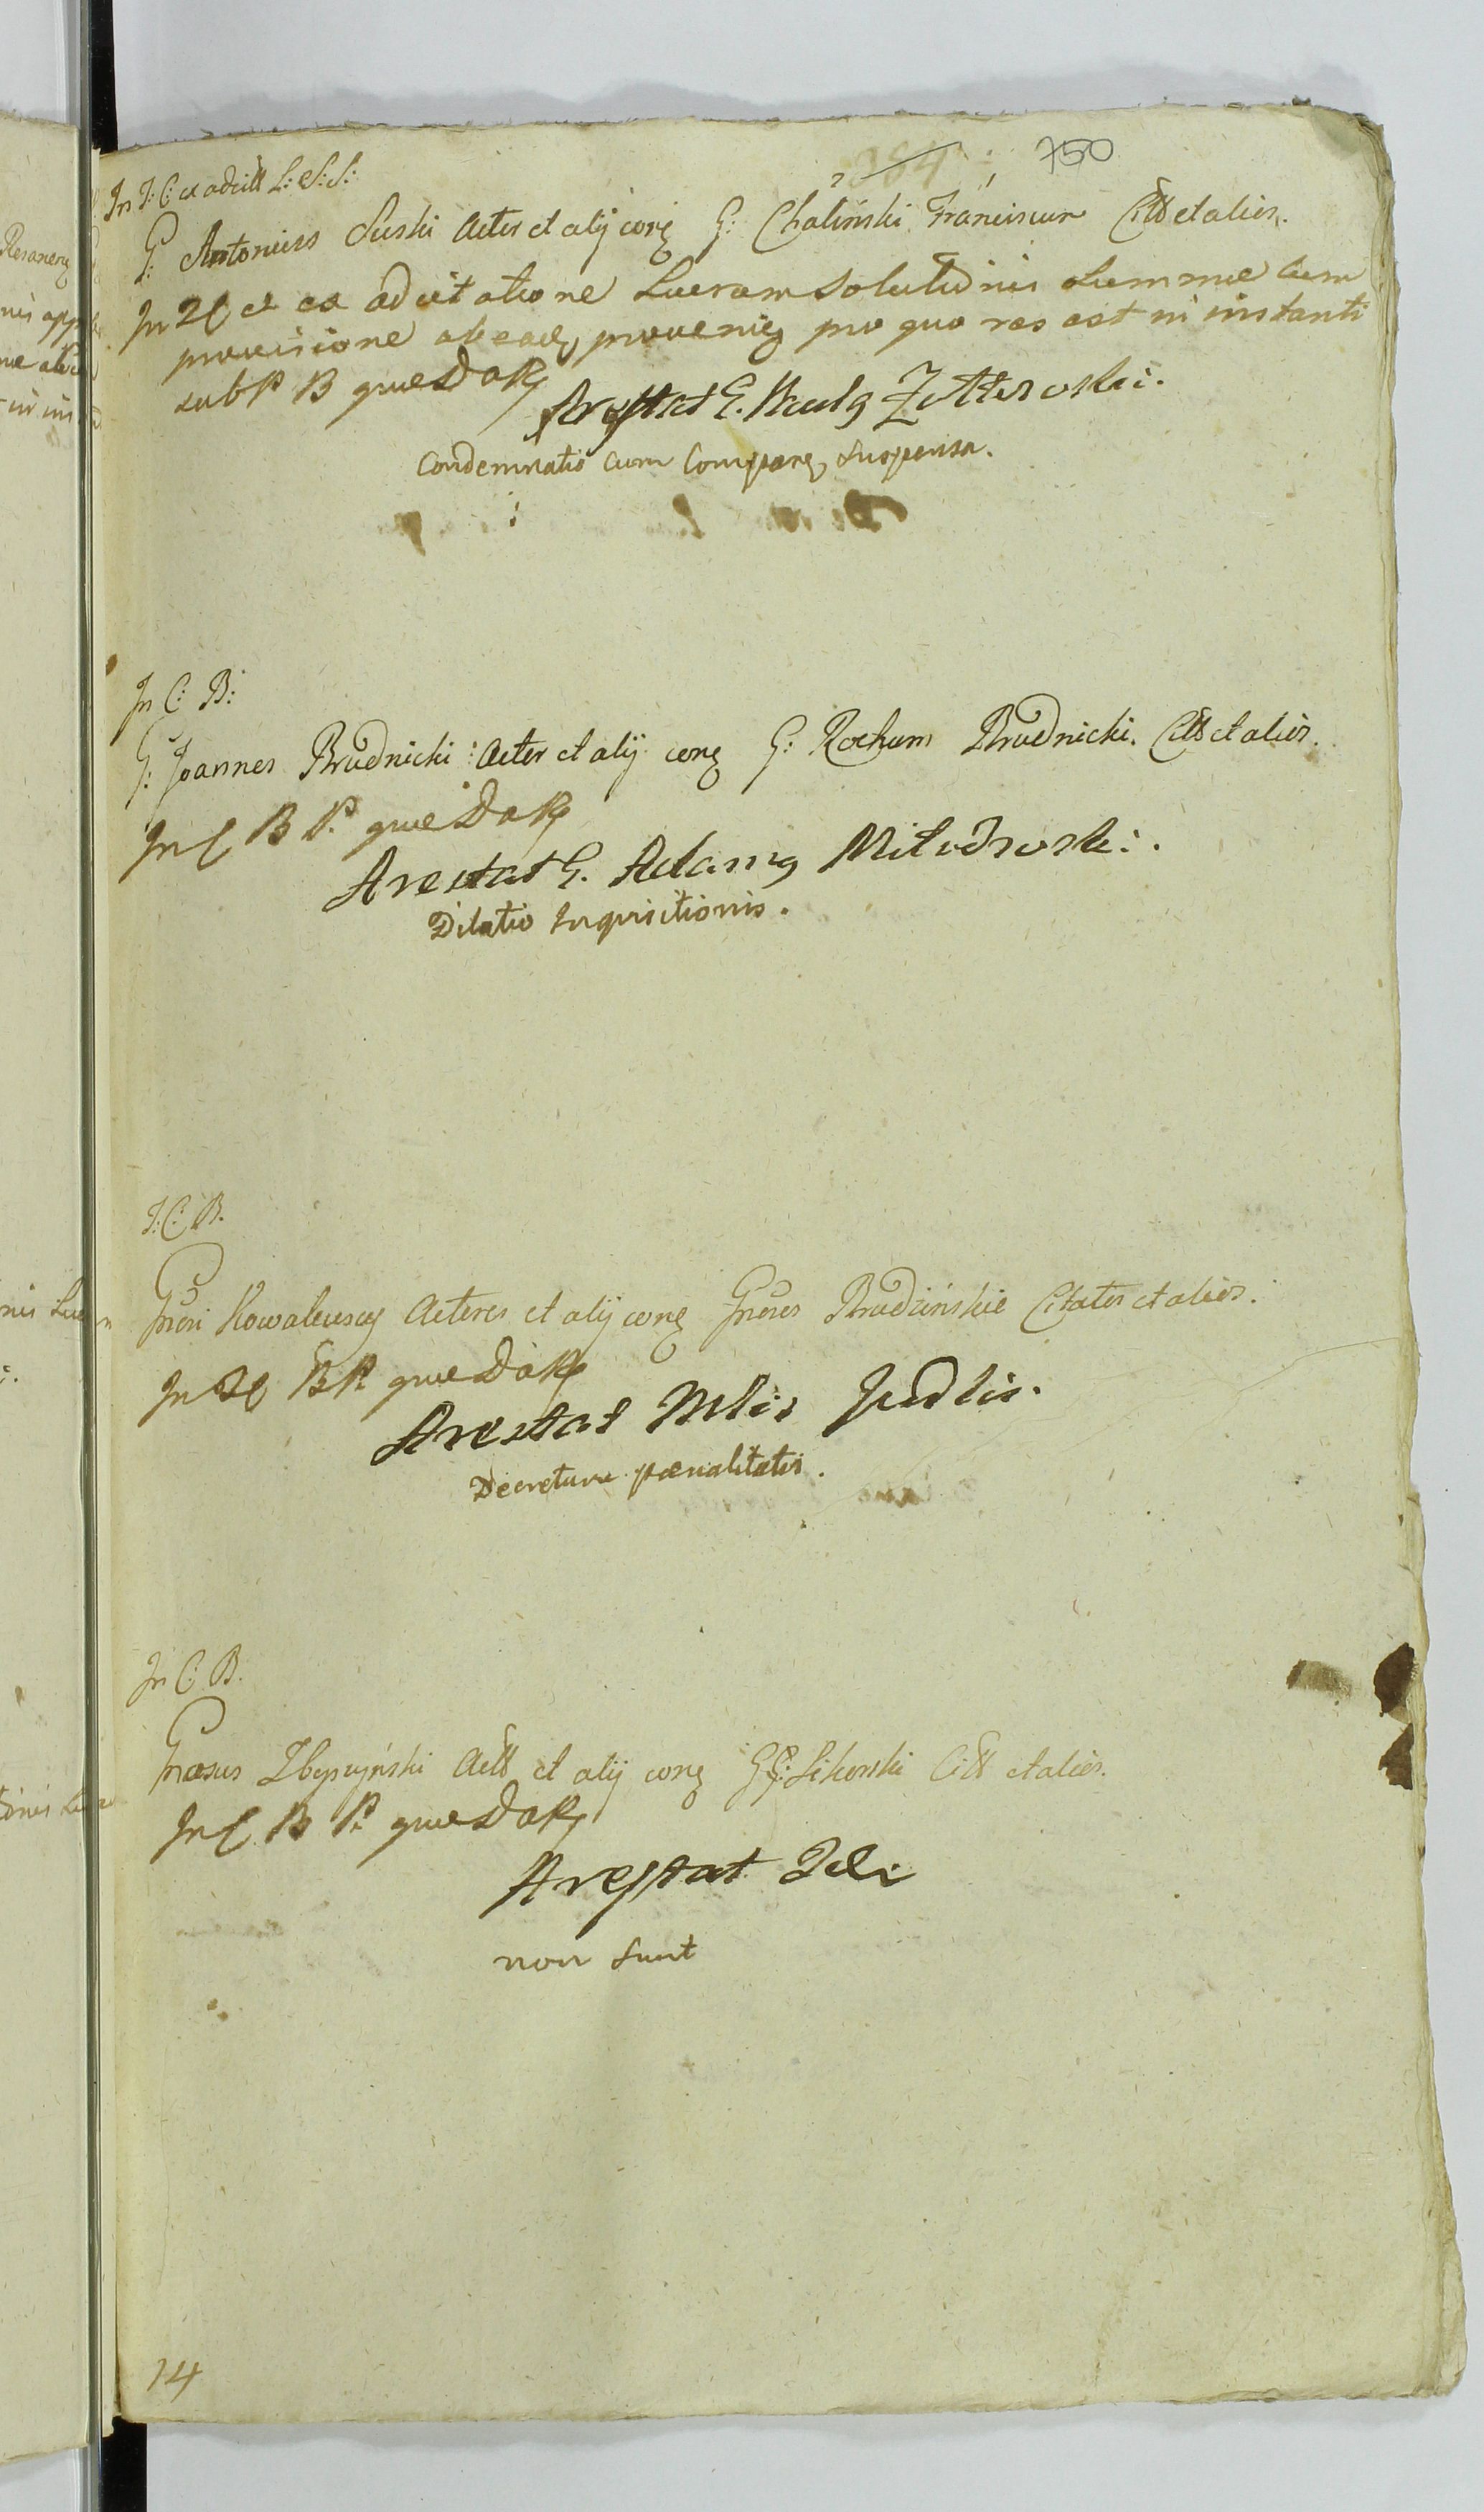 750
In T: C: ex adcitt L: S: S:
G: Antonius Suski Acter et alij conq G: Chaliński Franciscum Citt et alios.
In 2C et ex adcitatione Lucram Solutionis Summae cum
provisione ab eadq provenieq pro quo res est in instanti
sub P B quae D a R
Arestat G. Paulq Zółtowski.
Condemnatio cum Compareq Suspensa.
In C: B:
G: Joannes Brudnicki Acter et alij conq G: Rochum Brudnicki. Citt et alios.
In C B P. quae D a R
Arestat G. Adamq Miłodrowski.
Dilatio Inquisitionis.
T: C: B.
Gnosi Kowalewscy Actores et alij conq Gnosos Brudzińskie Citatos et alios.
In 2C B P. quae D a R
Arestat Mlis Judlis.
Decretum paenalitatis.
In C: B.
Gnosus Zbyszyński Actt et alij conq GG: Sikorski Citt et alios.
In C. B P. quae D a R
Arestat Idem
non sunt
14